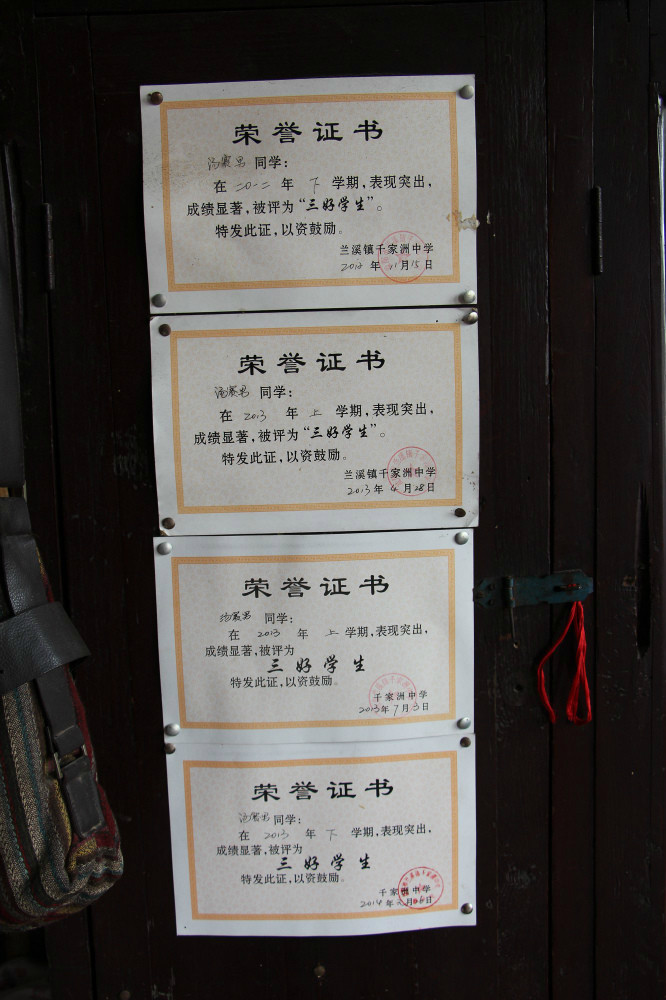 荣誉证书
汤赛男 同学:
在 二〇一二 年 下 学期,表现突出,
成绩显著,被评为“三好学生”。
特发此证,以资鼓励。
兰溪镇千家洲中学
2012 年 11 月 15 日
荣誉证书
汤赛男 同学:
在 2013 年 上 学期,表现突出,
成绩显著,被评为“三好学生”。
特发此证,以资鼓励。
兰溪镇千家洲中学
2013 年 4 月 28 日
荣誉证书
汤赛男 同学:
在 2013 年 上 学期,表现突出,
成绩显著,被评为
三好学生
特发此证,以资鼓励。
千家洲中学
2013 年 7 月 3 日
荣誉证书
汤赛男 同学:
在 2013 年 下 学期,表现突出,
成绩显著,被评为
三好学生
特发此证,以资鼓励。
千家洲中学
2014 年 月 日